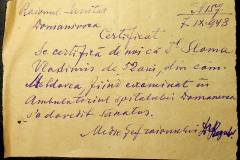 Raionul Sanitar
Domanevca
N 157
7.IX.1943
Certificat
Se certifică de noi că Dl Sloma
Vladimir de 52 ani, din com.
Moldovca, fiind examinat în
Ambulatoriul spitalului Domanevca
s'a dovedit sănătos.
Medic Șef raional